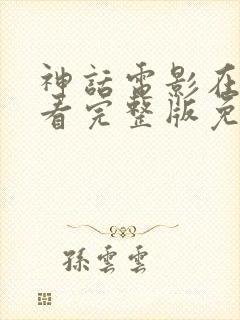 神話電影在
看完整版免
孫雲雲